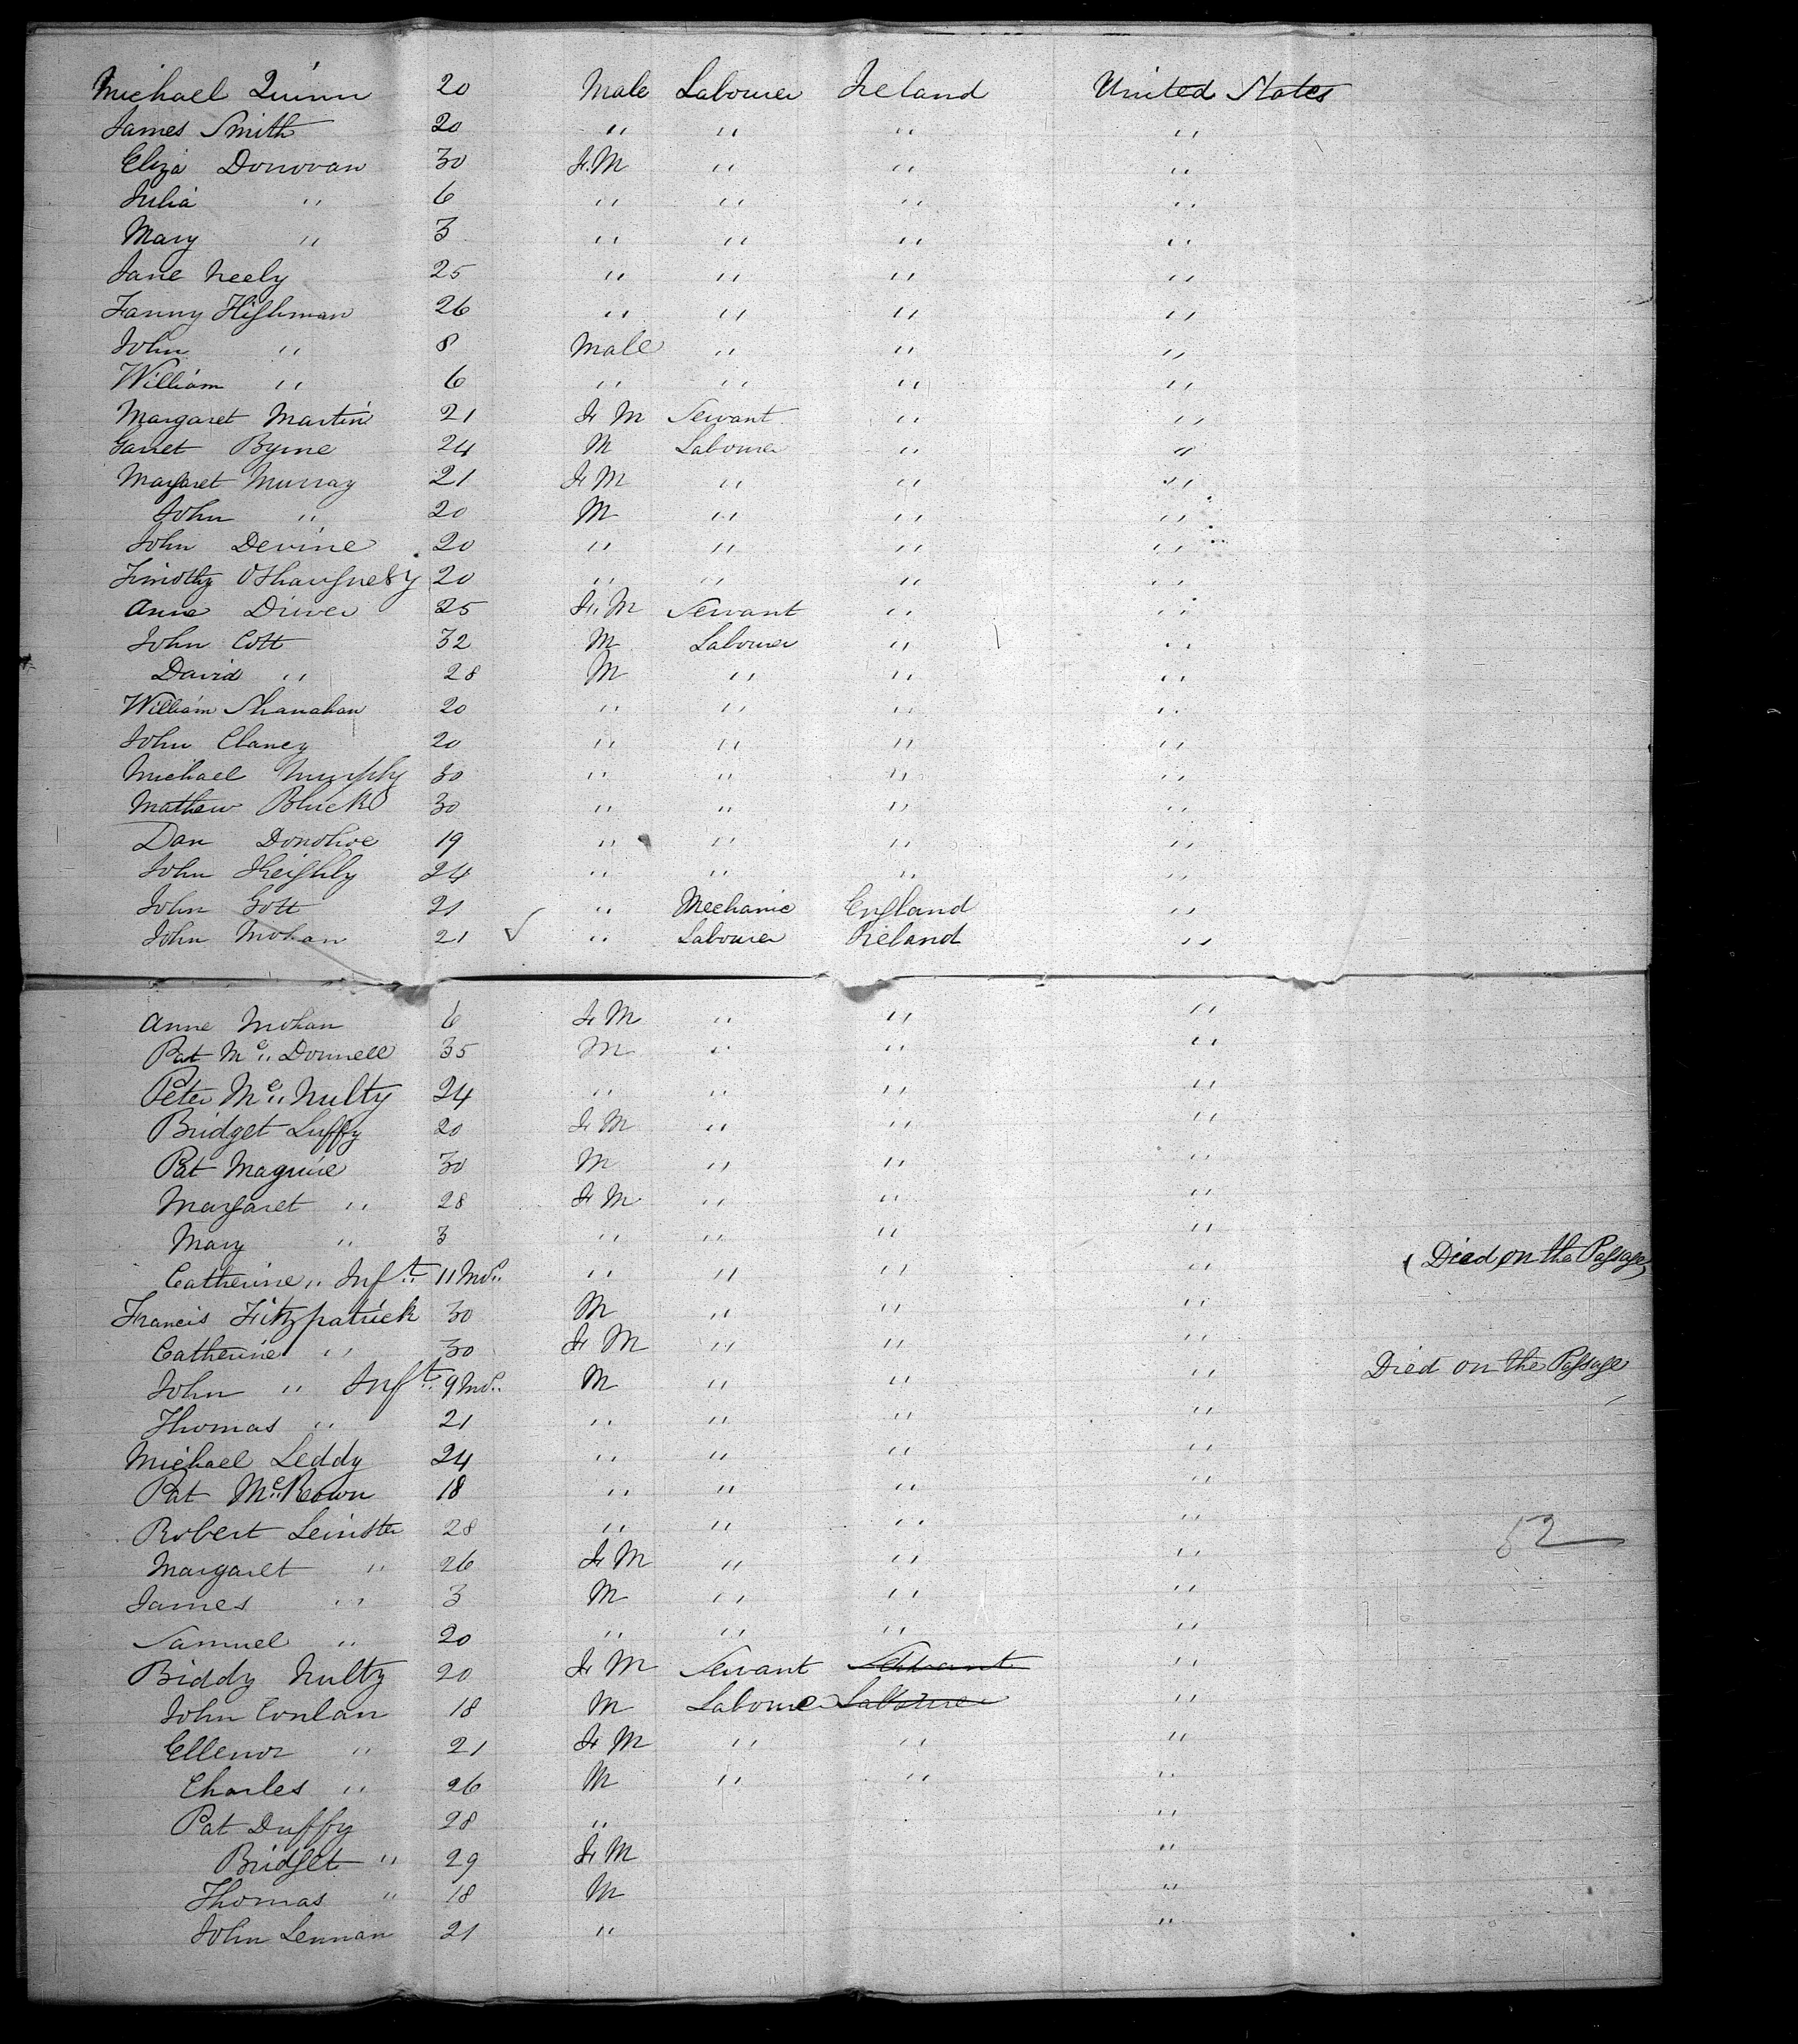 Michael Quinn 20 Male Labourer Ireland United States
James Smith 20 " " " "
Eliza Donovan 30 F.M " " "
Julia " 6 " " " "
Mary " 3 " " " "
Jane Neely 25 " " " "
Fanny Highman 26 " " " "
John " 8 Male " " "
William " 6 " " " "
Margaret Martin 21 F M Servant " "
Garret Byrne 24 M Labourer " "
Margaret Murray 21 F M " " "
John " 20 M " " "
John Devine 20 " " " "
Timothy OShaugnesy 20 " " " "
Anne Diver 25 F. M Servant " "
John Cott 32 M Labourer " "
David " 28 M " " "
William Shanahan 20 " " " "
John Clancy 20 " " " "
Michael Murphy 30 " " " "
Mathew Bluck 30 " " " "
Dan Donohoe 19 " " " "
John Keighly 24 " " " "
John Gott 21 " Mechanic England "
John Mohan 21 ✓ " Labourer Ireland "
Anne Mohan 6 F M " " "
Pat Mc. Donnell 35 M " " "
Peter Mc. Nulty 24 " " " "
Bridget Luffy 20 F M " " "
Pat Maguire 30 M " " "
Margaret " 28 F M " " "
Mary " 3 " " " "
Catherine " Inft. 11 Mos. " " " " (Died on the Passage)
Francis Fitzpatrick 30 M " " "
Catherine " 30 F M " " "
John " Inft. 9 Mos. M " " " Died on the Passage
Thomas " 21 " " " "
Michael Leddy 24 " " " "
Pat Mc.Keown 18 " " " "
Robert Leinster 28 " " " " 52
Margaret " 26 F M " " "
James " 3 M " " "
Samuel " 20 " " " "
Biddy Nulty 20 F M Servant Servant "
John Conlan 18 M Labourer Labourer "
Ellenor " 21 F M " " "
Charles " 26 M " " "
Pat Duffy 28 " "
Bridget " 29 F M "
Thomas " 18 M "
John Lennan 21 " "